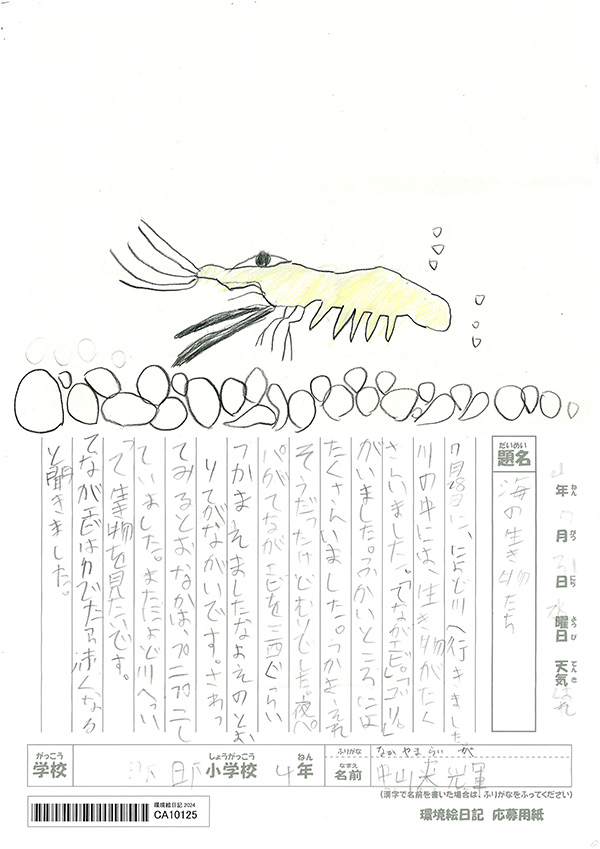 4年 7月 31日 水曜日 天気 はれ
ねん がつ にち ようび てんき
だいめい
題名
海の生き物たち
7月28日に、によど川へ行きました。
川の中には、生き物がたく
さんいました。「てながエビ。」「ゴリ。」
がいました。ふかいところには
たくさんいました。つかまえれ
そうだったけどむりでした。夜、パ
パがてながエビを二匹ぐらい
つかまえれましたなまえのとお
りてがながいです。さわっ
てみるとおなかは、プニプニし
ていました。またによど川へい
って生き物を見たいです。
てながエビはゆでたら赤くなる
と聞きました。
がっこう
学校
しょうがっこう
小学校
4年
ねん
ふりがな
なかやま らいが
なまえ
名前
中山
(漢字で名前を書いた場合は、ふりがなをふってください)
環境絵日記 2024
CA10125
環境絵日記 応募用紙